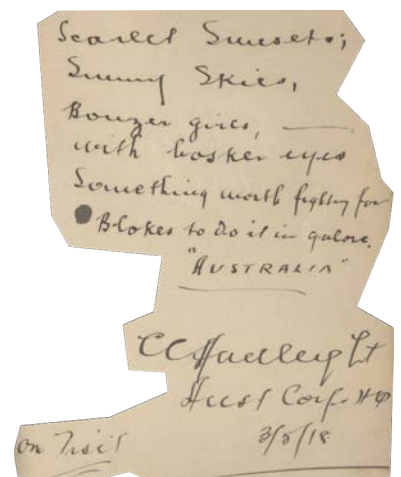 Scarlet Sunsets;
Sunny Skies,
Bonzer girls, —
with bosker eyes
Something worth fighting for
Blokes to do it in galore.
"AUSTRALIA"
CC Hadleigh Lt
Aust Corps HQ
on Visit 3/5/18